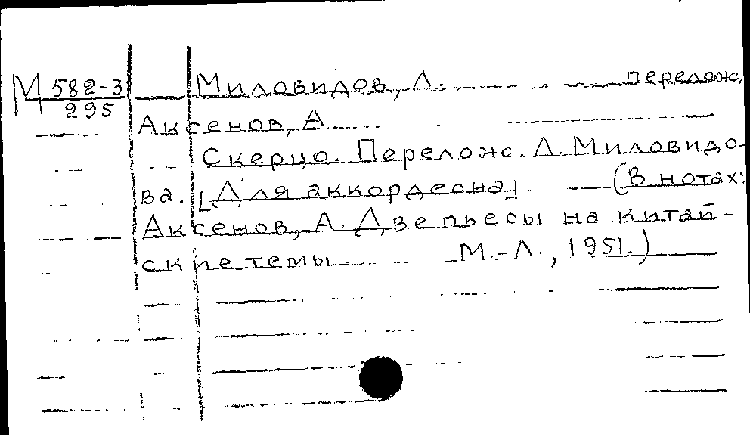 М 582-3 Миловидов, А. перелож.
295
Аксенов, А
Скерцо. Перелож. А. Миловидо-
ва. [Для аккордеона] (В нотах:
Аксенов, А. Две пьесы на китай-
ские темы М.-Л., 1951.)